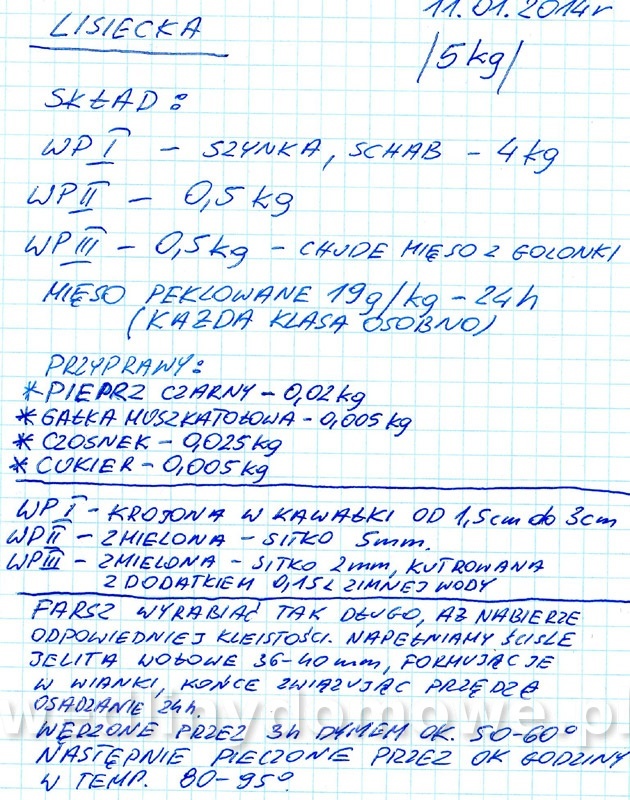 LISIECKA
11.01.2014r
/5kg/
SKŁAD:
WP I - SZYNKA, SCHAB - 4kg
WP II - 0,5kg
WP III - 0,5kg - CHUDE MIĘSO Z GOLONKI
MIĘSO PEKLOWANE 19g/kg - 24h
(KAŻDA KLASA OSOBNO)
PRZYPRAWY:
* PIEPRZ CZARNY - 0,02kg
* GAŁKA MUSZKATOŁOWA - 0,005kg
* CZOSNEK - 0,025kg
* CUKIER - 0,005kg
WP I - KROJONA W KAWAŁKI OD 1,5cm do 3cm
WP II - ZMIELONA - SITKO 5mm.
WP III - ZMIELONA - SITKO 2mm, KUTROWANA
Z DODATKIEM 0,15L ZIMNEJ WODY
FARSZ WYRABIAĆ TAK DŁUGO, AŻ NABIERZE
ODPOWIEDNIEJ KLEISTOŚCI. NAPEŁNIAMY ŚCIŚLE
JELITA WOŁOWE 36-40mm, FORMUJĄC JE
W WIANKI, KOŃCE ZWIĄZUJĄC PRZĘDZĄ
OSADZANIE 24h.
WĘDZONE PRZEZ 3h DYMEM OK. 50-60°
NASTĘPNIE PIECZONE PRZEZ OK GODZINY
W TEMP. 80-95°